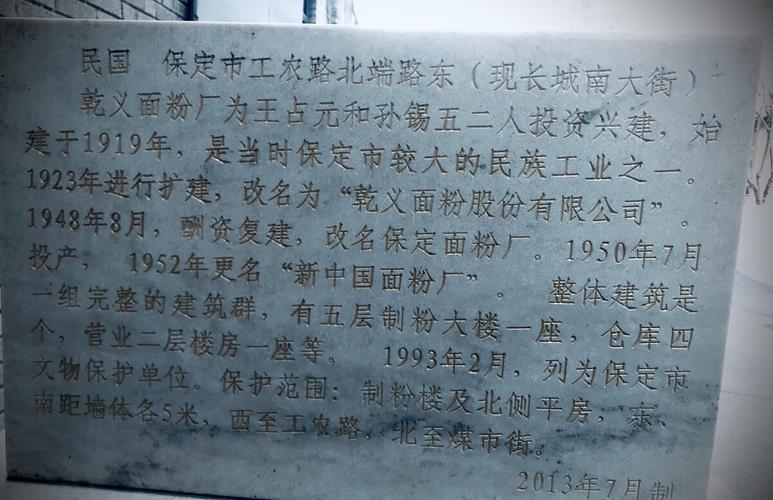 民国　保定市工农路北端路东（现长城南大街）
乾义面粉厂为王占元和孙锡五二人投资兴建，始
建于1919年，是当时保定市较大的民族工业之一。
1923年进行扩建，改名为“乾义面粉股份有限公司”。
1948年8月，酬资复建，改名保定面粉厂。1950年7月
投产， 1952年更名“新中国面粉厂”。 整体建筑是
一组完整的建筑群，有五层制粉大楼一座，仓库四
个，营业二层楼房一座等。 1993年2月，列为保定市
文物保护单位。保护范围：制粉楼及北侧平房，东、
南距墙体各5米，西至工农路，北至煤市街。
2013年7月制